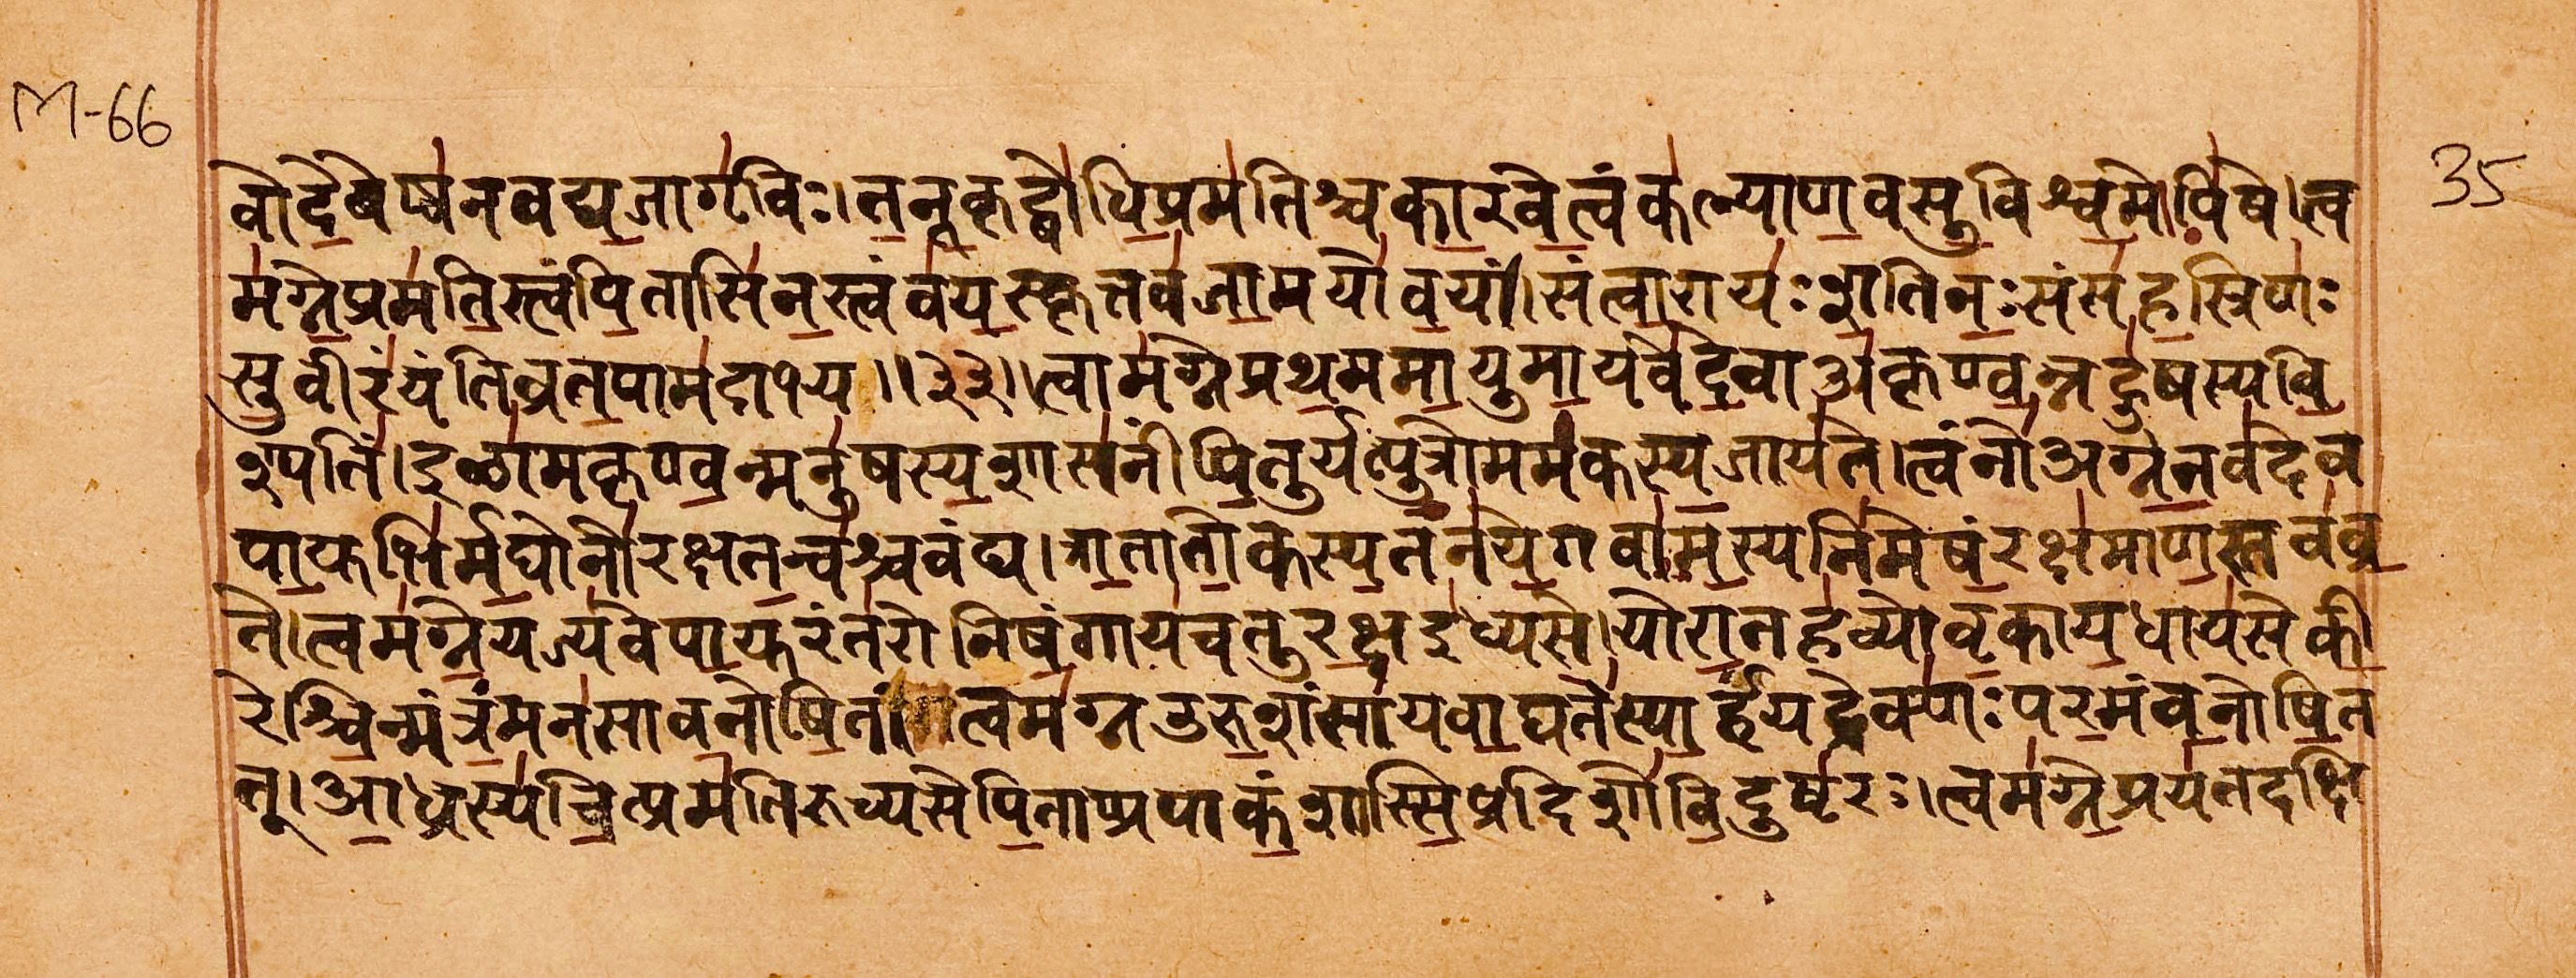 M-66
35
वोदे॒वेष्व॑नवद्य॒जागृ॑विः।त॒नू॒कृद्बो॑धि॒प्रम॑तिश्चका॒रवे॒त्वंक॑ल्याण॒वसु॒विश्व॒मोपि॑षे।त्व
म॑ग्ने॒प्रम॑ति॒स्त्वंपि॒तासि॑न॒स्त्वंव॑य॒स्कृत्तव॑जा॒मयो॑व॒यं।संत्वा॒रायः॑श॒तिनः॒संस॑ह॒स्रिणः॑
सु॒वीरं॑यंतिव्रत॒पाम॑दाभ्य॥३३॥त्वाम॑ग्नेप्रथ॒ममा॒युमा॒यवे॑दे॒वाअ॑कृण्व॒न्नहु॑षस्यवि॒
श्पतिं॑।इळा॑मकृण्व॒न्मनु॑षस्य॒शास॑नींपि॒तुर्यत्पु॒त्रोमम॑कस्य॒जाय॑ते।त्वंनो॑अग्ने॒तव॑देव
पा॒युभि॑र्म॒घोनो॑रक्षत॒न्व॑श्चवंद्य।त्रा॒तातो॒कस्य॒तन॑ये॒गवा॑म॒स्यनि॑मेषं॒रक्ष॑माण॒स्तव॑व्र॒
ते।त्वम॑ग्ने॒यज्य॑वेपा॒युरंत॑रोनिषं॒गाय॑चतुर॒क्षइ॑ध्यसे।योरा॒तह॑व्योवृ॒काय॒धाय॑सेकी॒
रेश्चि॒न्मंत्रं॒मन॑साव॒नोषि॒तं।त्वम॑ग्नउरु॒शंसा॑यवा॒घते॑स्पा॒र्हंयद्रेक्णः॑पर॒मंव॒नोषि॒त
त्।आ॒ध्रस्य॑चि॒त्प्रम॑तिरुच्यसेपि॒ताप्रपाकं॒शास्सि॒प्रदिशो॑वि॒दुष्ट॑रः।त्वम॑ग्ने॒प्रय॑तदक्षि